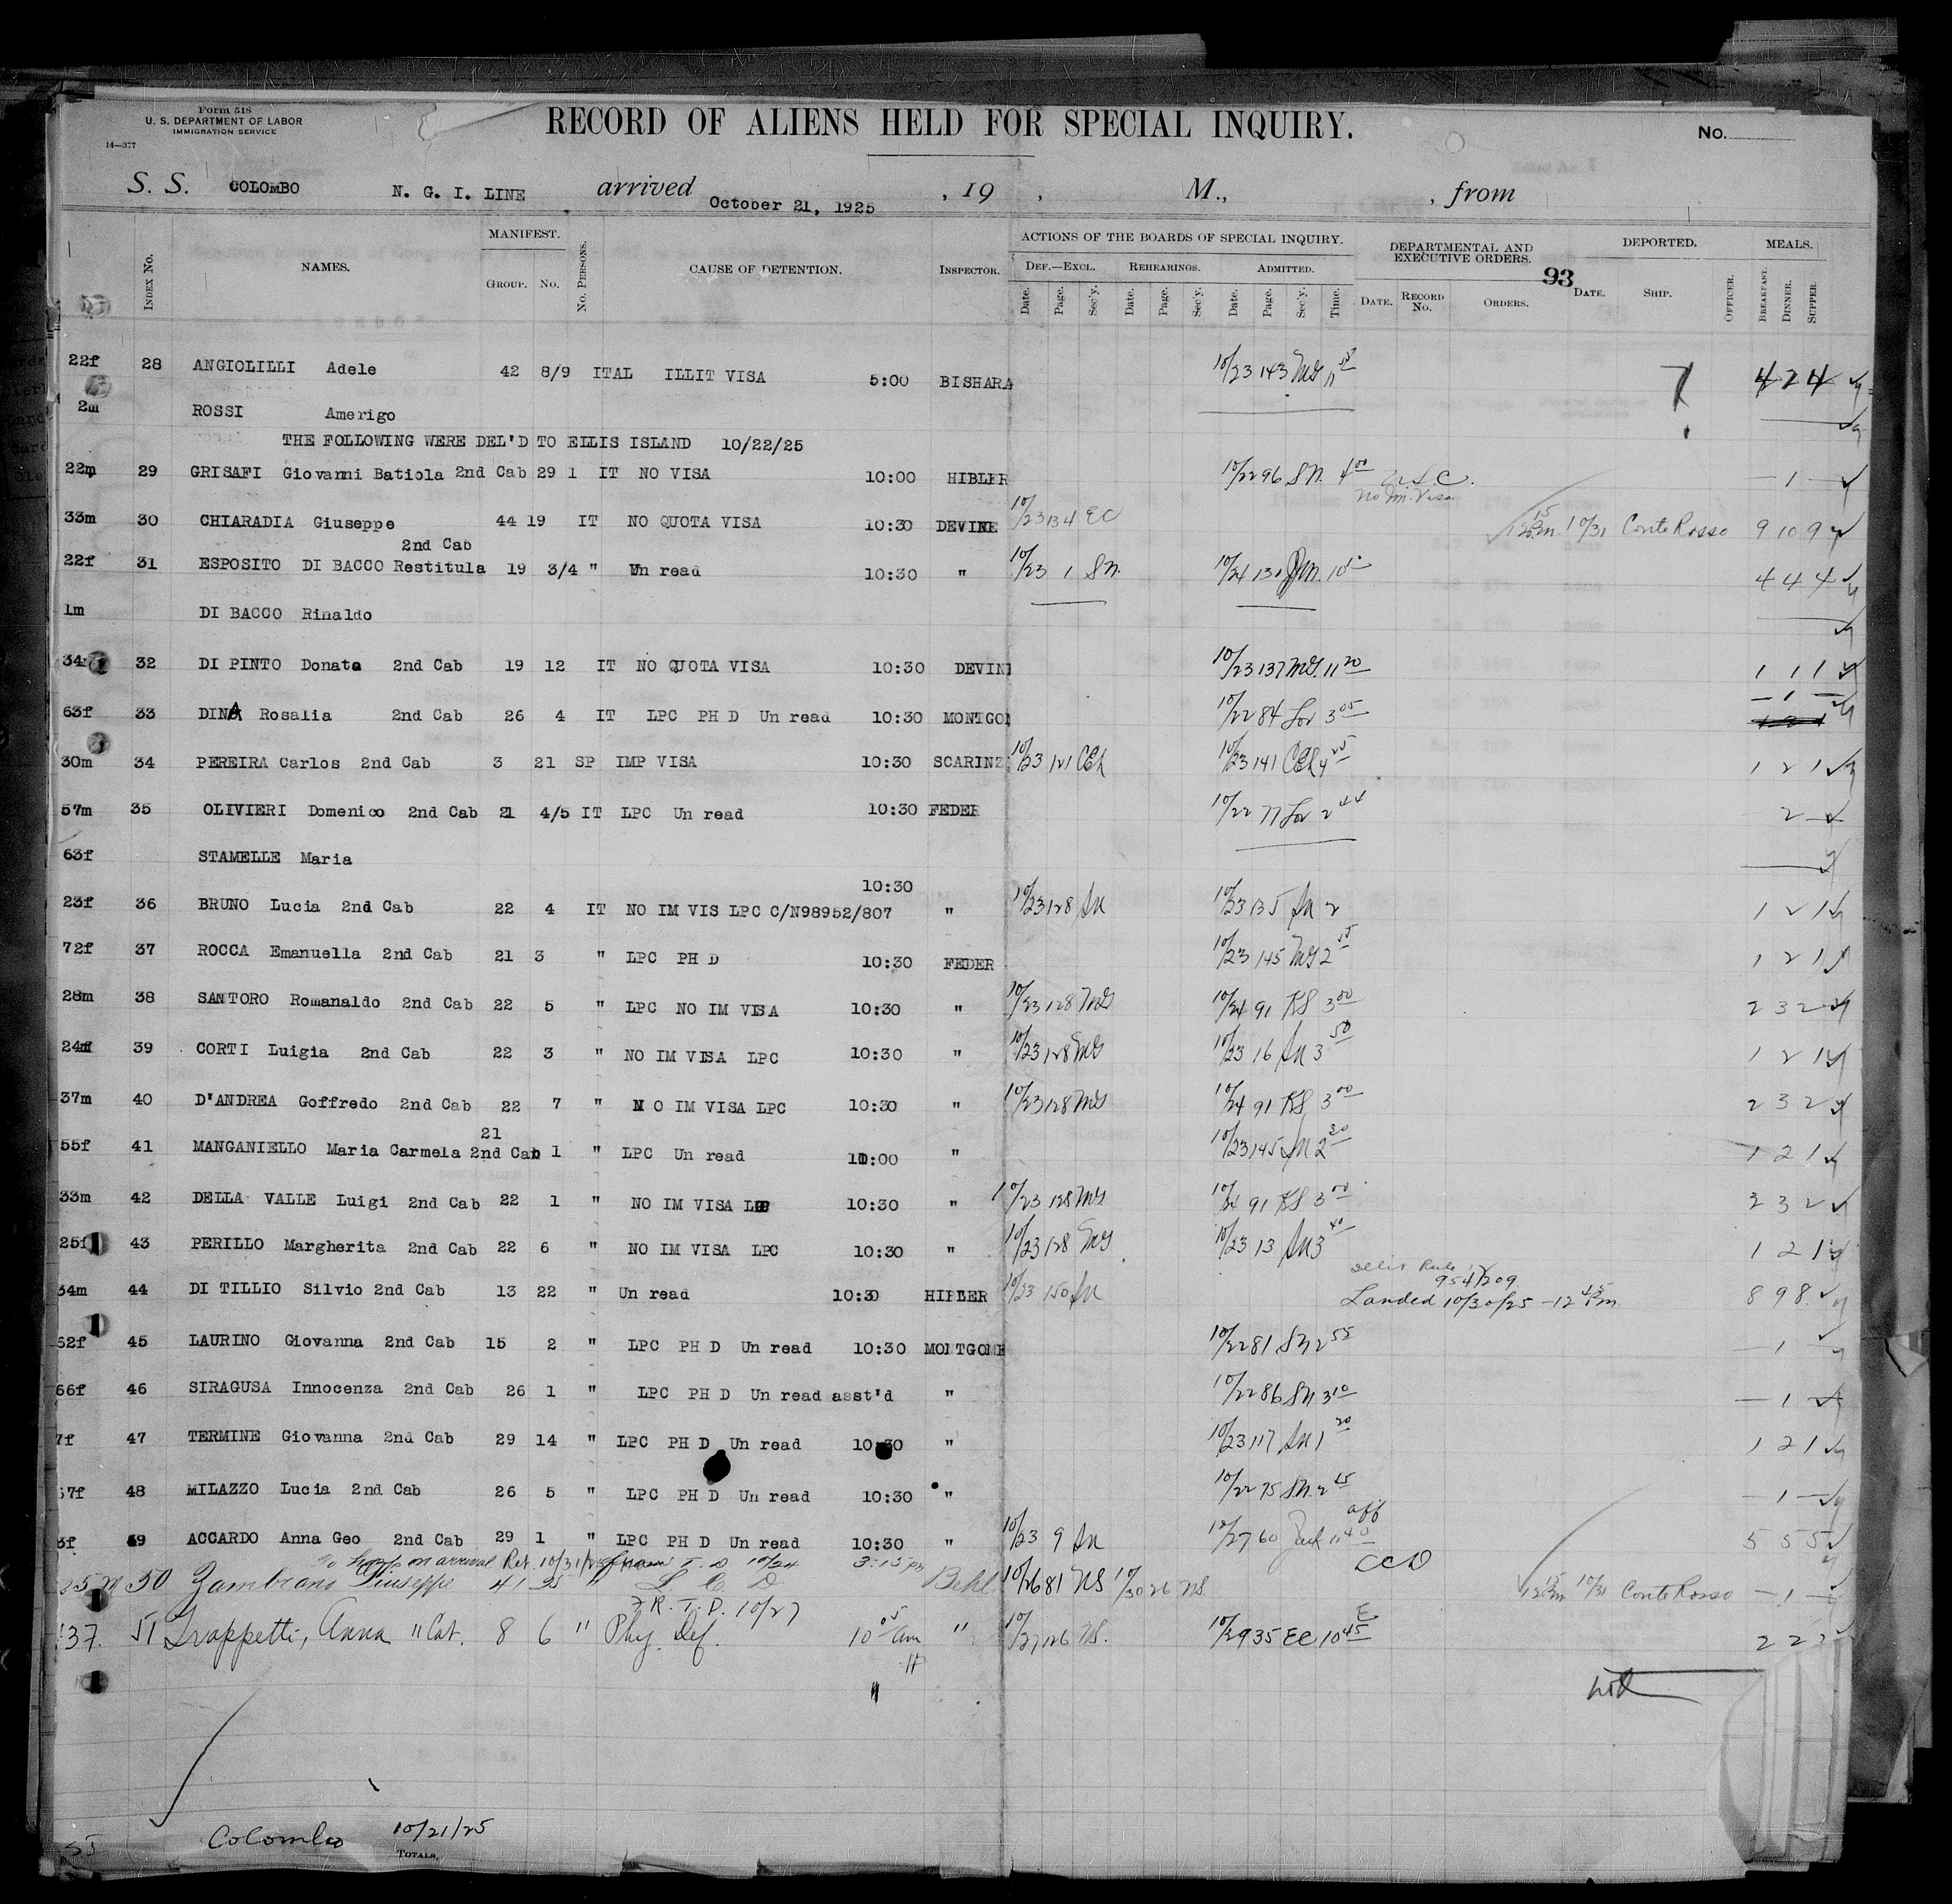 Form 518
U. S. DEPARTMENT OF LABOR
IMMIGRATION SERVICE
14—377
RECORD OF ALIENS HELD FOR SPECIAL INQUIRY.
No.
S. S. COLOMBO N. G. I. LINE arrived October 21, 1925 , 19 , M., , from
INDEX No. NAMES. MANIFEST. GROUP. No. No. PERSONS. CAUSE OF DETENTION. INSPECTOR. ACTIONS OF THE BOARDS OF SPECIAL INQUIRY. DEPARTMENTAL AND EXECUTIVE ORDERS. DEPORTED. MEALS.
DEF.—EXCL. REHEARINGS. ADMITTED. 93
Date. Page. Sec'y. Date. Page. Sec'y. Date. Page. Sec'y. Time. DATE. RECORD No. ORDERS. DATE. SHIP. OFFICER. BREAKFAST. DINNER. SUPPER.
22f 28 ANGIOLILLI Adele 42 8/9 ITAL ILLIT VISA 5:00 BISHARA 10/23 143 MS 11 4 2 4
2m ROSSI Amerigo
THE FOLLOWING WERE DEL'D TO ELLIS ISLAND 10/22/25
22m 29 GRISAFI Giovanni Batiola 2nd Cab 29 1 IT NO VISA 10:00 HIBLER 10/22 96 SN. 4 00 — 1 —
No Im. Visa
33m 30 CHIARADIA Giuseppe 44 19 IT NO QUOTA VISA 10:30 DEVINE 10/23 134 EC 10/31 Conte Rosso 9 10 9
2nd Cab
22f 31 ESPOSITO DI BACCO Restitula 19 3/4 " Un read 10:30 " 10/23 1 SN. 10/24 4 4 4
1m DI BACCO Rinaldo
34 32 DI PINTO Donata 2nd Cab 19 12 IT NO QUOTA VISA 10:30 DEVIN 10/23 137 MS. 11 20 1 1 1
63f 33 DINA Rosalia 2nd Cab 26 4 IT LPC PH D Un read 10:30 MONTGO 10/22 84 Lov 3 05 — 1 —
30m 34 PEREIRA Carlos 2nd Cab 3 21 SP IMP VISA 10:30 SCARINZ 10/23 121 CEh 10/23 141 CEh 4 1 2 1
57m 35 OLIVIERI Domenico 2nd Cab 21 4/5 IT LPC Un read 10:30 FEDER 10/22 77 Lov 2 44 2
63f STAMELLE Maria
10:30
23f 36 BRUNO Lucia 2nd Cab 22 4 IT NO IM VIS LPC C/N98952/807 " 10/23 128 Sn 10/23 135 Sn 2 1 2 1
72f 37 ROCCA Emanuella 2nd Cab 21 3 " LPC PH D 10:30 FEDER 10/23 145 MS 2 1 2 1
28m 38 SANTORO Romanaldo 2nd Cab 22 5 " LPC NO IM VISA 10:30 " 10/23 128 MS 10/24 91 KS 3 00 2 3 2
24f 39 CORTI Luigia 2nd Cab 22 3 " NO IM VISA LPC 10:30 " 10/23 128 MS 10/23 16 Sn 3 50 1 2 1
37m 40 D'ANDREA Goffredo 2nd Cab 22 7 " N O IM VISA LPC 10:30 " 10/23 128 MS 10/24 91 KS 3 00 2 3 2
21
55f 41 MANGANIELLO Maria Carmela 2nd Cab 1 " LPC Un read 10:00 " 10/23 145 Sn 2 1 2 1
33m 42 DELLA VALLE Luigi 2nd Cab 22 1 " NO IM VISA " 10:30 " 10/23 128 MS 10/24 91 KS 3 00 2 3 2
25f 43 PERILLO Margherita 2nd Cab 22 6 " NO IM VISA LPC 10:30 " 10/23 128 MS 10/23 13 Sn 3 40 1 2 1
954/209
34m 44 DI TILLIO Silvio 2nd Cab 13 22 " Un read 10:30 HIBLER 10/23 150 Sn Landed 10/30/25 - 12 45 pm 8 9 8
62f 45 LAURINO Giovanna 2nd Cab 15 2 " LPC PH D Un read 10:30 MONTGOME 10/22 81 SN 2 55 — 1 —
66f 46 SIRAGUSA Innocenza 2nd Cab 26 1 " LPC PH D Un read asst'd " 10/22 86 SN 3 10 — 1 —
7f 47 TERMINE Giovanna 2nd Cab 29 14 " LPC PH D Un read 10:30 " 10/23 117 Sn 1 20 1 2 1
57f 48 MILAZZO Lucia 2nd Cab 26 5 " LPC PH D Un read 10:30 " 10/22 75 SN. 2 — 1 —
3f 49 ACCARDO Anna Geo 2nd Cab 29 1 " LPC PH D Un read 10:30 " 10/23 9 Sn 10/27 60 11 40 5 5 5
To Hosp on arrival Ret. 10/31/25 T. D 10/24 3:15 pm
25 m 50 Zambrano Giuseppe 41 25 " L. C. D. Behl. 10/26 81 NS 10/30 26 NS 10/31 Conte Rosso — 1 —
T. D. 10/27
37. 51 Trappetti, Anna " Cab. 8 6 " Phy. Def. 10 05 am " 10/27 126 NS. 10/29 35 EC 10 45 2 2 2
Colombo 10/21/25
TOTALS,